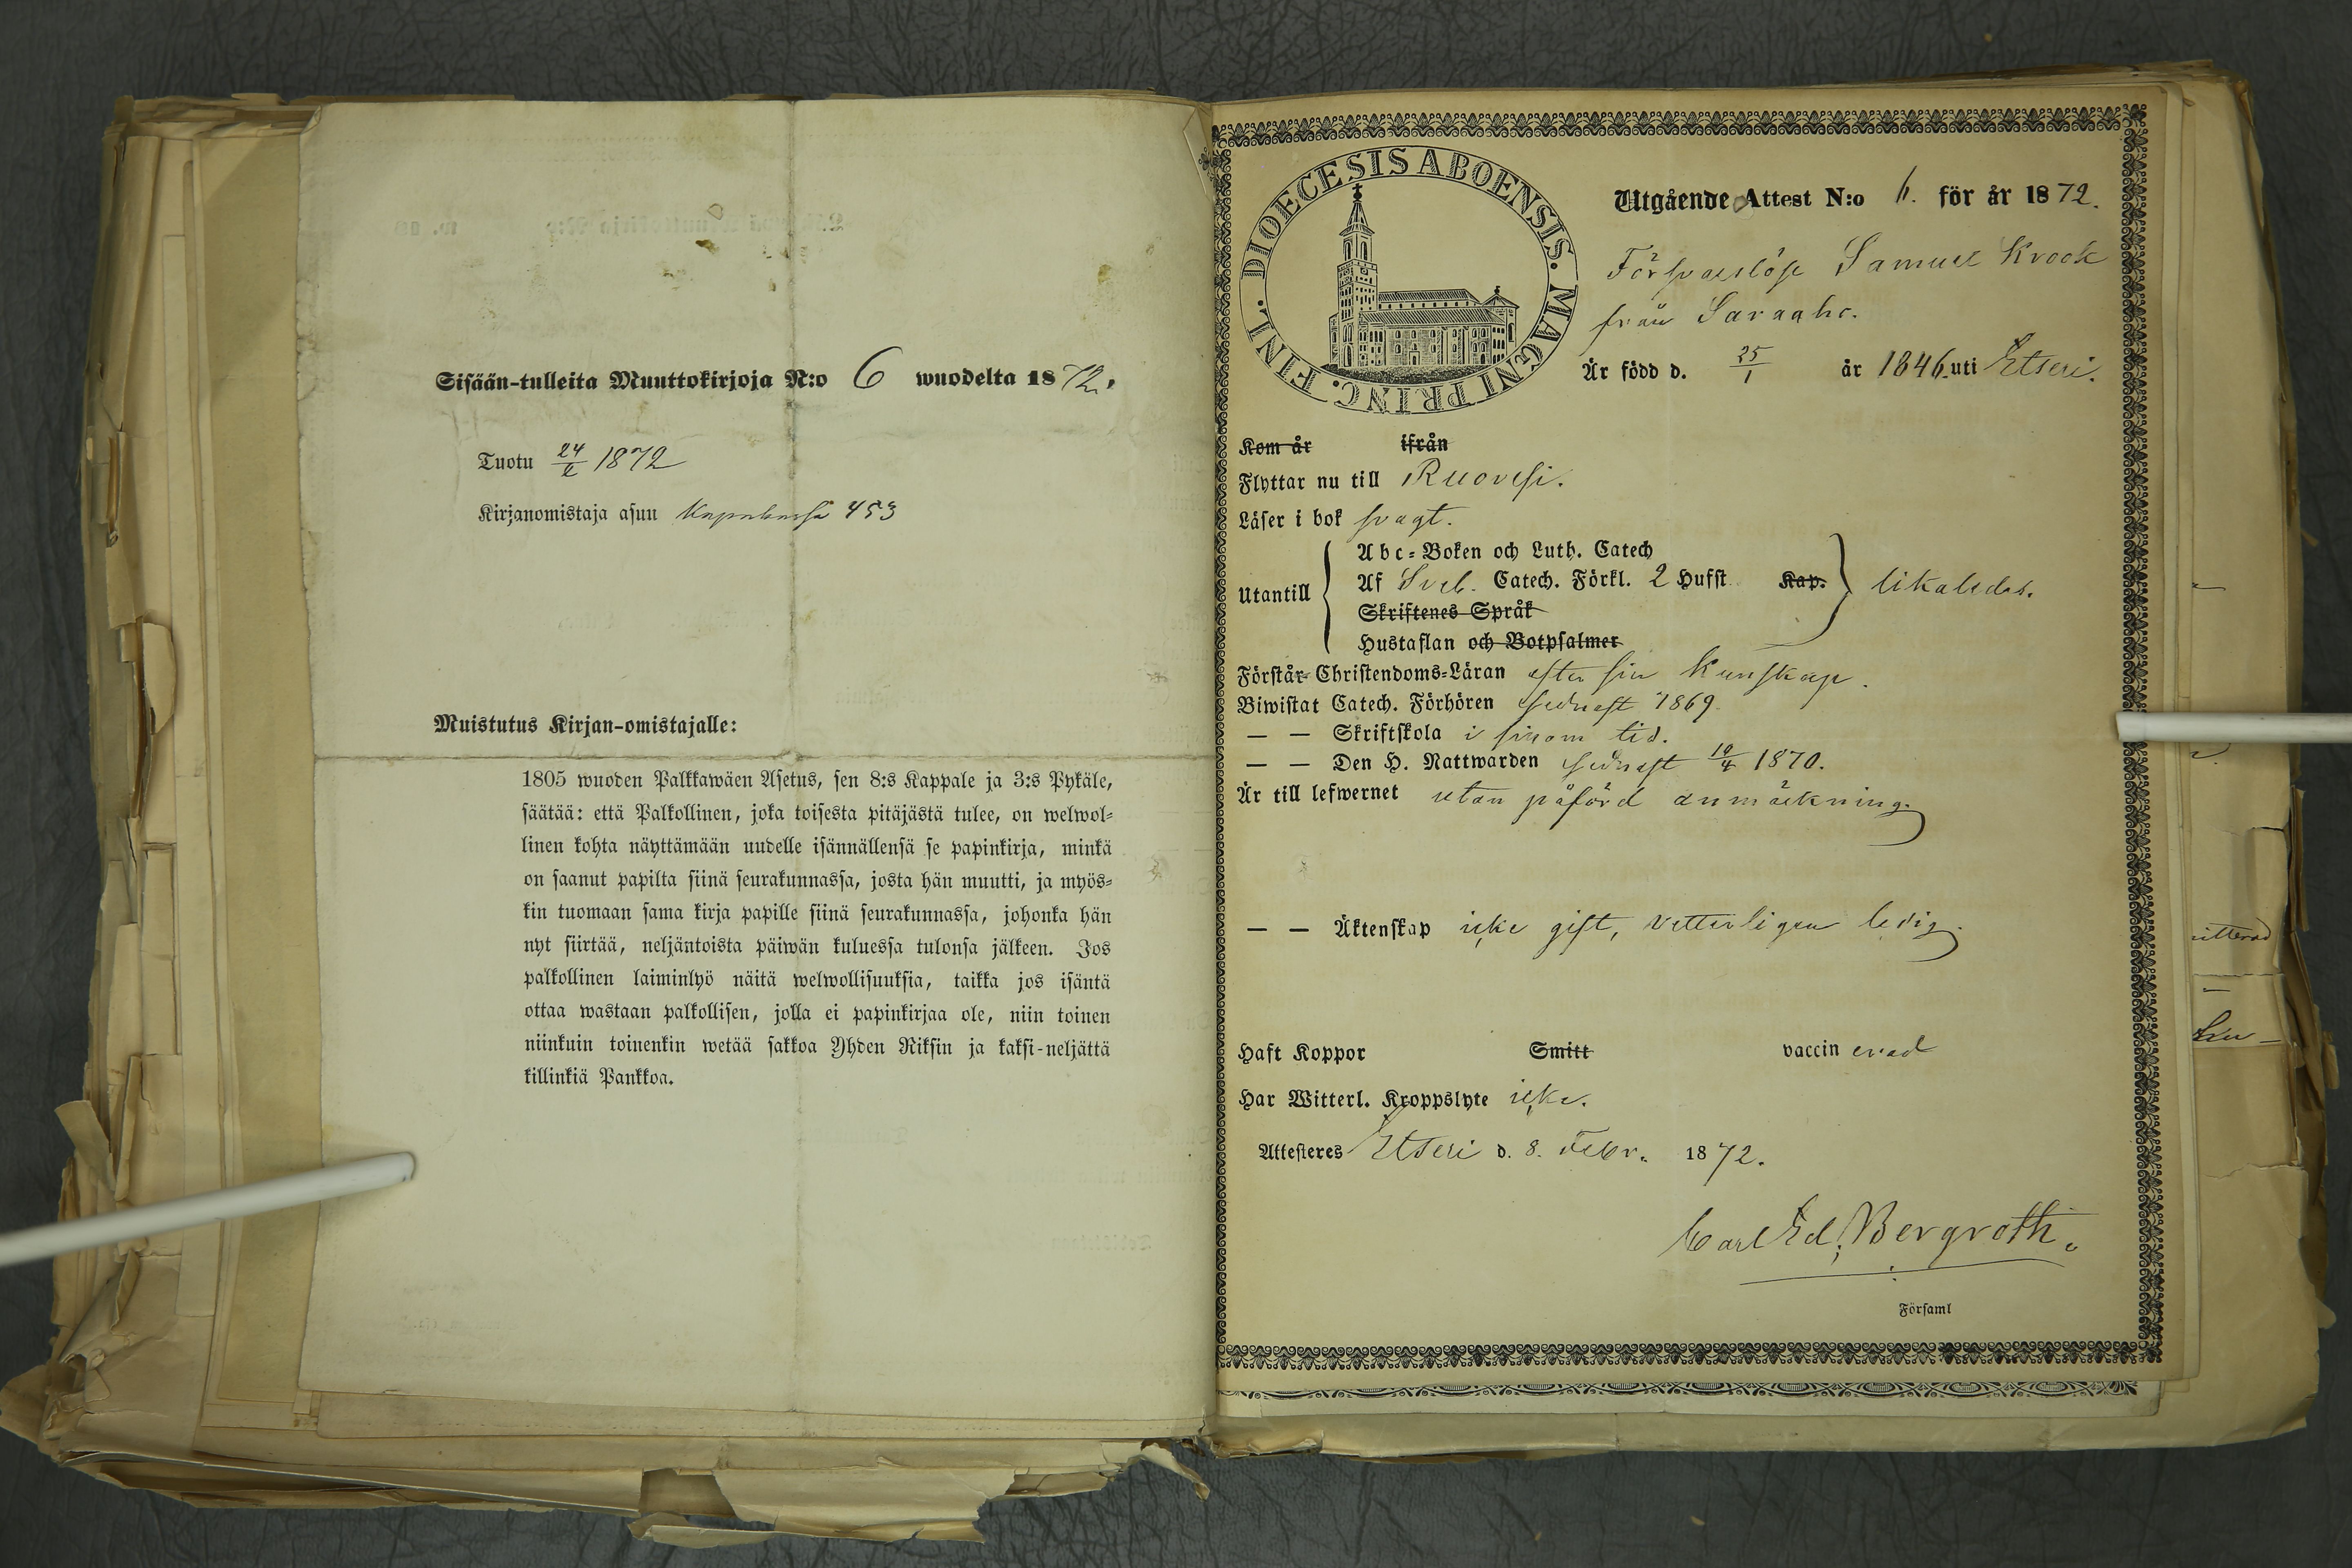 Sisään-tulleita Muuttokirjoja N:o 6 wuodelta 1872.
Tuotu 24/2 1872
Kirjanomistaja asuu 453
Muistutus Kirjan-omistajalle:
1805 wuoden Palkkawäen Asetus, sen 8:s Kappale ja 3:s Pykäle,
säätää: että Palkollinen, joka toisesta pitäjästä tulee, on welwol-
linen kohta näyttämään uudelle isännällensä se papinkirja, minkä
on saanut papilta siinä seurakunnassa, josta hän muutti, ja myös-
kin tuomaan sama kirja papille siinä seurakunnassa, johonka hän
nyt siirtää, neljäntoista päiwän kuluessa tulonsa jälkeen. Jos
palkollinen laiminlyö näitä welwollisuuksia, taikka jos isäntä
ottaa wastaan palkollisen, jolla ei papinkirjaa ole, niin toinen
niinkuin toinenkin wetää sakkoa Yhden Riksin ja kaksi-neljättä
killinkiä Pankkoa.
FINL. DIOECESIS ABOENSIS. MAGNI PRINC.
Utgående Attest N:o 6. för år 1872.
Försvarslöse Samuel Krook
från Saraaho.
Är född d. 25/1 år 1846. uti Etseri.
Kom år ifrån
Flyttar nu till Ruovesi.
Läser i bok svagt.
Utantill
Abc-Boken och Luth. Catech
Af Sveb. Catech. Förkl. 2 Hufst. Kap.
likaledes.
Skriftenes Språk
Hustaflan och Botpsalmer
Förstår Christendoms-Läran efter sin kunskap.
Biwistat Catech. Förhören sednast 1869.
— — Skriftskola i sinom tid.
— — Den H. Nattwarden sednast 10/4 1870.
Är till lefwernet utan påförd anmärkning.
— — Äktenskap icke gift, vetterligen ledig.
Haft Koppor Smitt vaccinerad
Har Witterl. Kroppslyte icke.
Attesteres Etseri d. 8. Febr. 1872.
Carl Ed. Bergroth.
Församl